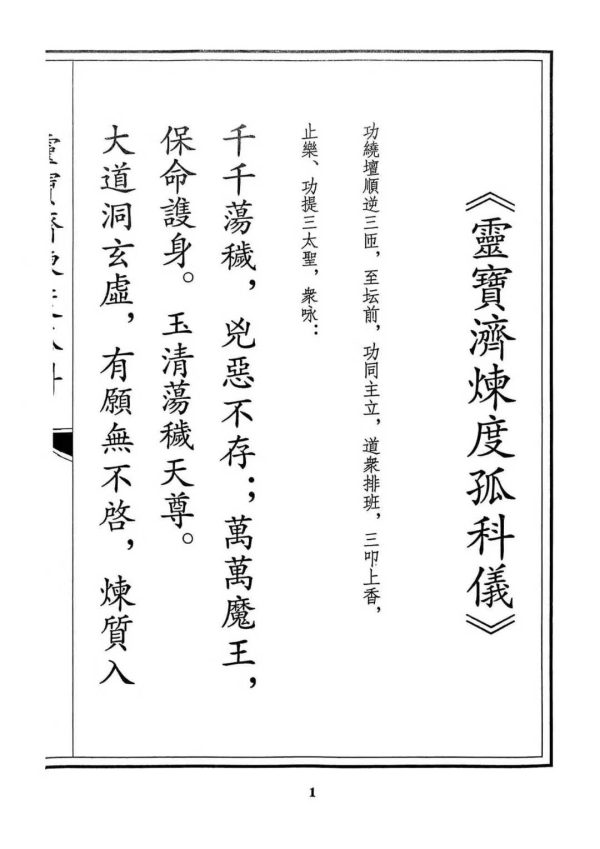 《靈寶濟煉度孤科儀》
功繞壇順逆三匝，至坛前，功同主立，道衆排班，三叩上香，
止樂、功提三太聖，衆咏：
千千蕩穢，兇惡不存；萬萬魔王，
保命護身。玉清蕩穢天尊。
大道洞玄虛，有願無不啓，煉質入
1